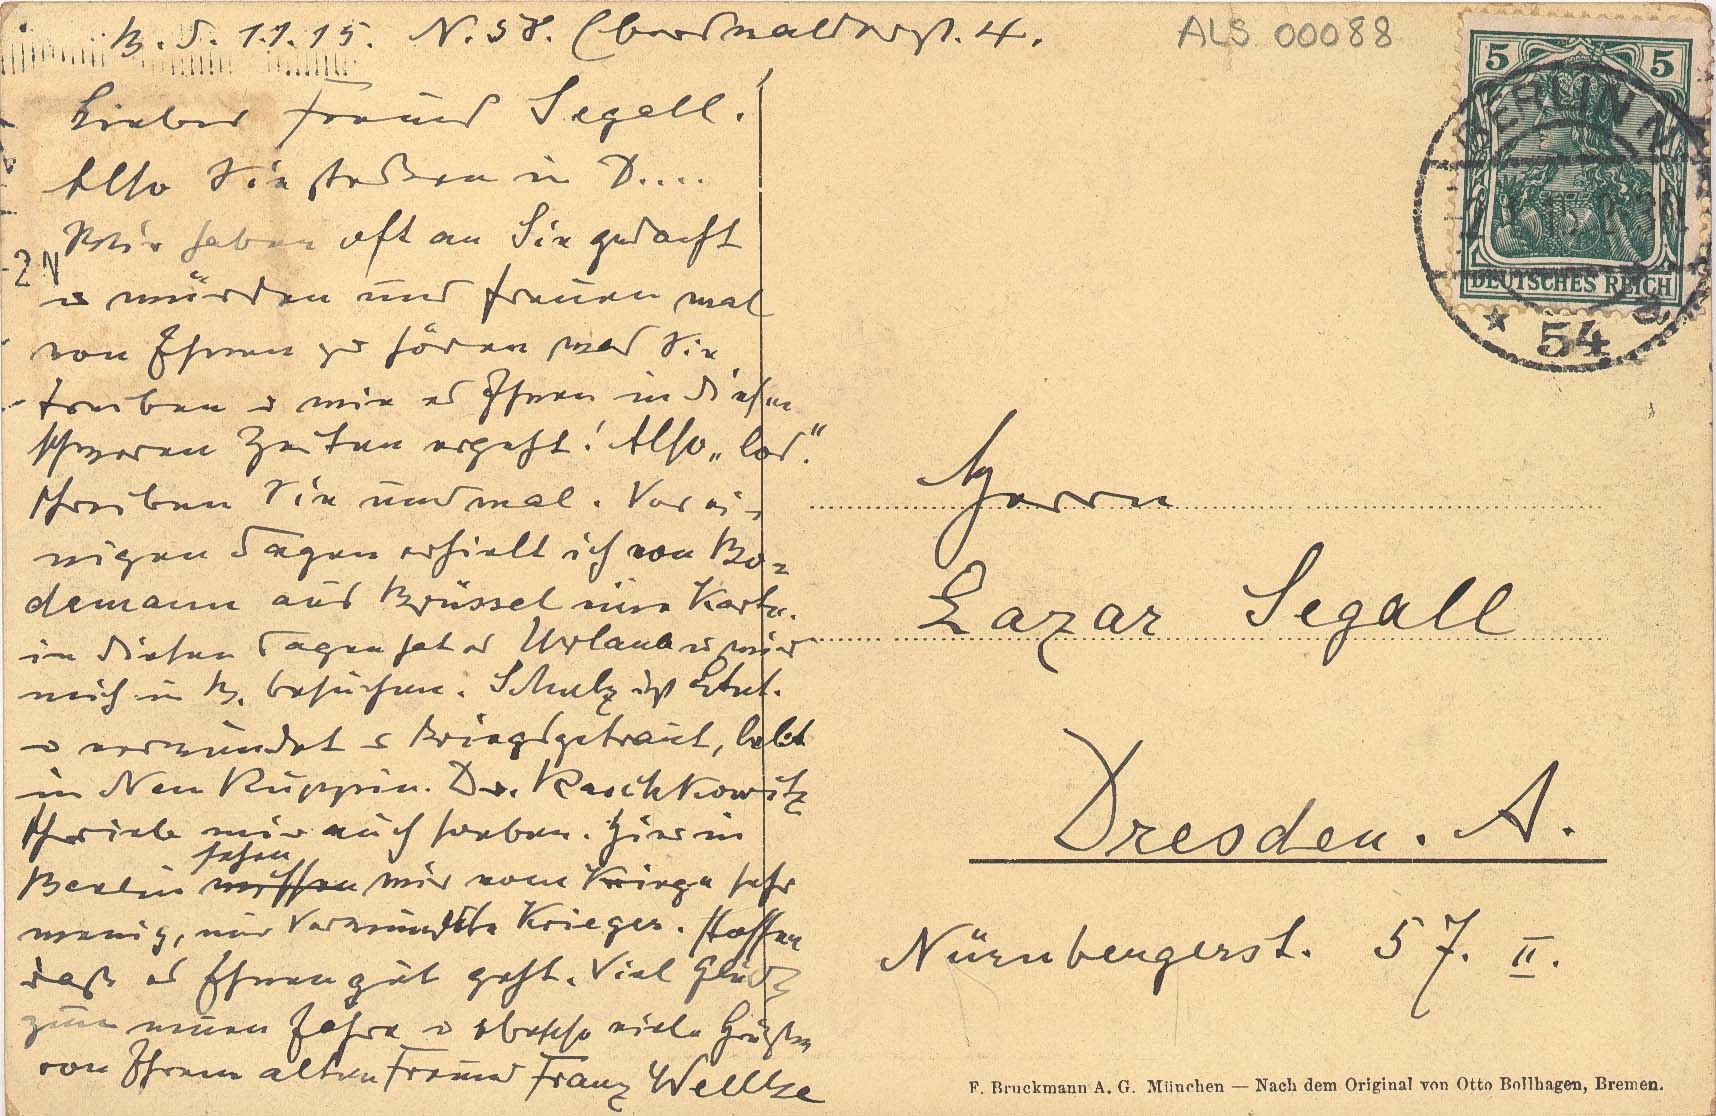 B. d. 1.1.15. N. 58. Eberswalderst. 4.
ALS 00088
Lieber Freund Segall.
Also Sie stecken in D....
Wir haben oft an Sie gedacht
u würden uns freuen mal
von Ihnen zu hören was Sie
treiben u wie es Ihnen in diesen
schweren Zeiten ergeht! Also „los“.
schreiben Sie uns mal. Vor ei-
nigen Tagen erhielt ich von Bo-
demann aus Brüssel eine Karte.
in diesen Tagen hat er Urlaub u wird
mich in B. besuchen. Schulz ist Leut.
u verwundet u Kriegsgetraut, lebt
in Neu Ruppin. Dr. Raschkowitz
schrieb mir auch soeben. Hier in
sehen
Berlin wissen wir vom Kriege sehr
wenig, nur Verwundete Krieger. Hoffen
daß es Ihnen gut geht. Viel Glück
zum neuen Jahre u ebenso viele Grüße
von Ihrem alten Freund Franz
2N
5 5
BERLIN N
15
DEUTSCHES REICH
* 54 a
Herrn
Lazar Segall
Dresden. A.
Nürnbergerst. 57. II.
F. Bruckmann A. G. München — Nach dem Original von Otto Bollhagen, Bremen.